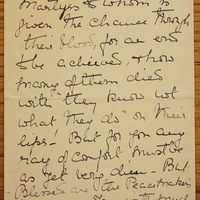 Martyrs to whom is
given the chance through
their blood, for an end
to be achieved, & how
many of them died
with "they know not
what they do" on their
lips! But for you any
ray of comfort must be
as yet very dim - But
Blessed are the Peacemakers